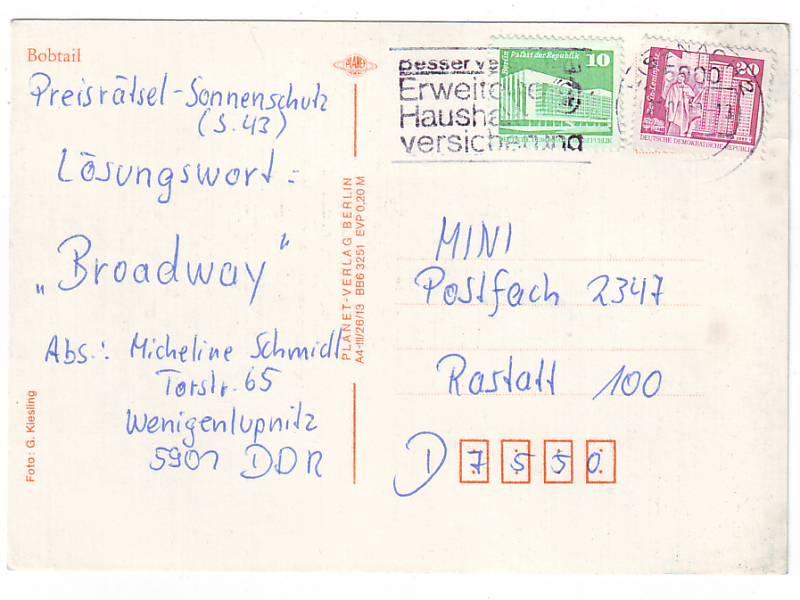 Bobtail
Preisrätsel-Sonnenschutz
(S. 43)
Lösungswort:
„Broadway"
Abs.: Micheline Schmidt
Torstr. 65
Wenigenlupnitz
5901 DDR
Foto: G. Kiesling
PLANET-VERLAG BERLIN
A4-III/26/13 BB6 3251 EVP 0,20 M
PLANET
Besser ve
Erweite
Hausha
versicherung
Palast der Republik
10
20
DEUTSCHE DEMOKRATISCHE REPUBLIK
MINI
Postfach 2347
Rastatt 100
D 7550